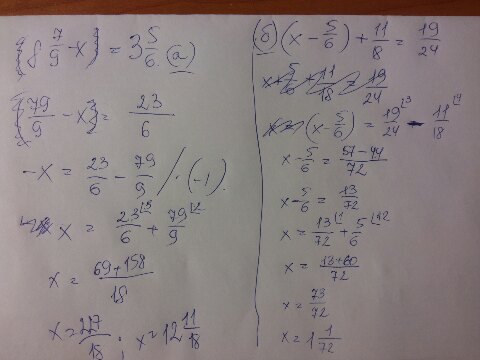 {8 7/9 - x} = 3 5/6 (a)
{79/9 - x} = 23/6
-x = 23/6 - 79/9 / · (-1)
x = 23/6 + 79/9
x = 69+158/18
x = 227/18 ; x = 12 11/18
(б) (x - 5/6) + 11/18 = 19/24
x + 5/6 + 11/18 = 19/24
(x - 5/6) = 19/24 - 11/18
x - 5/6 = 57-44/72
x - 5/6 = 13/72
x = 13/72 + 5/6
x = 13+60/72
x = 73/72
x = 1 1/72